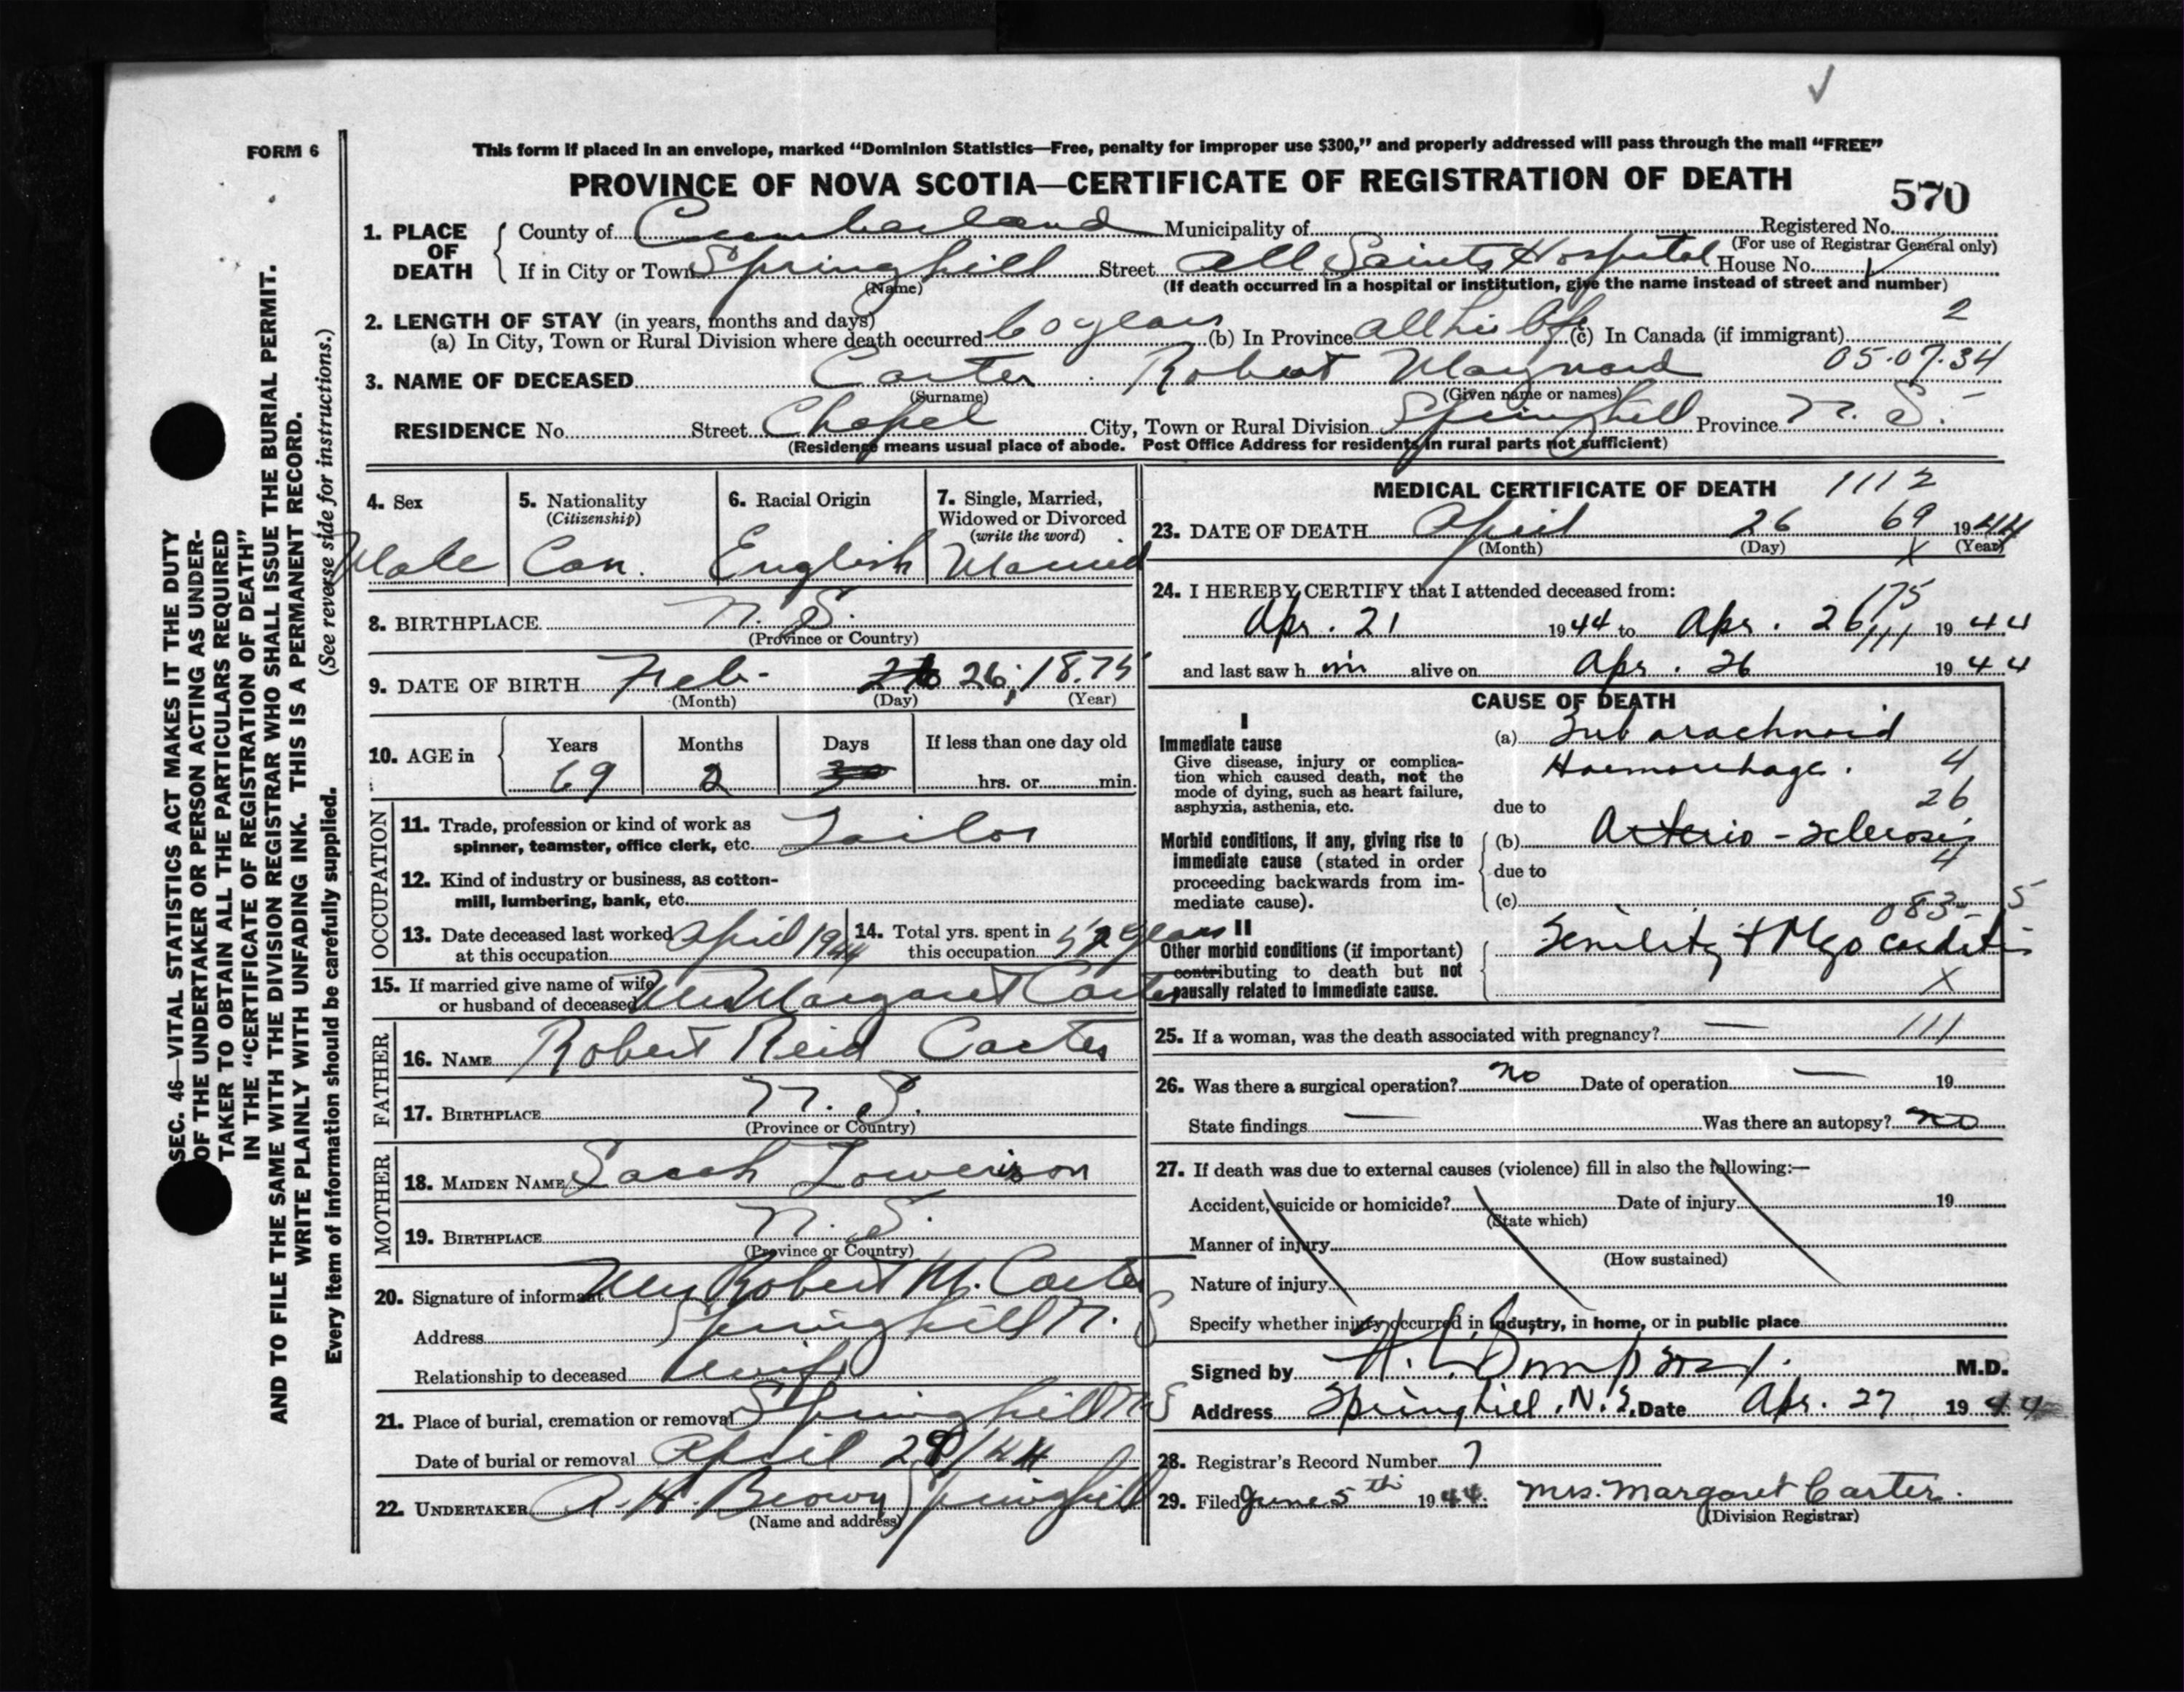 FORM 6
This form if placed in an envelope, marked "Dominion Statistics—Free, penalty for improper use $300," and properly addressed will pass through the mail "FREE"
PROVINCE OF NOVA SCOTIA—CERTIFICATE OF REGISTRATION OF DEATH
570
1. PLACE OF DEATH
County of Cumberland Municipality of Registered No.
(For use of Registrar General only)
If in City or Town Springhill Street All Saints Hospital House No.
(Name) (If death occurred in a hospital or institution, give the name instead of street and number)
2. LENGTH OF STAY (in years, months and days) 2
(a) In City, Town or Rural Division where death occurred 60 years (b) In Province All his life (c) In Canada (if immigrant)
05.07.34
3. NAME OF DECEASED Carter Robert Maynard
(Surname) (Given name or names)
RESIDENCE No. Street Chapel City, Town or Rural Division Springhill Province N. S.
(Residence means usual place of abode. Post Office Address for residents in rural parts not sufficient)
4. Sex
Male
5. Nationality
(Citizenship)
Can.
6. Racial Origin
English
7. Single, Married,
Widowed or Divorced
(write the word)
Married
8. BIRTHPLACE N. S.
(Province or Country)
9. DATE OF BIRTH Feb. 26, 1875
(Month) (Day) (Year)
10. AGE in
Years Months Days If less than one day old
69 2 hrs. or min.
OCCUPATION
11. Trade, profession or kind of work as
spinner, teamster, office clerk, etc. Tailor
12. Kind of industry or business, as cotton-
mill, lumbering, bank, etc.
13. Date deceased last worked
at this occupation April 1944
14. Total yrs. spent in
this occupation years
15. If married give name of wife
or husband of deceased Mrs Margaret Carter
FATHER
16. NAME Robert Reid Carter
17. BIRTHPLACE N. S.
(Province or Country)
MOTHER
18. MAIDEN NAME Sarah Lowerison
19. BIRTHPLACE N. S.
(Province or Country)
20. Signature of informant Mrs Robert M. Carter
Address Springhill N. S
Relationship to deceased wife
21. Place of burial, cremation or removal Springhill N S
Date of burial or removal April /44
22. UNDERTAKER A. H. Brown Springhill
(Name and address)
MEDICAL CERTIFICATE OF DEATH 1112
23. DATE OF DEATH April 26 69 1944
(Month) (Day) X (Year)
24. I HEREBY CERTIFY that I attended deceased from:
175
Apr. 21 1944 to Apr. 26 1944
111
and last saw him alive on Apr. 26 1944
CAUSE OF DEATH
I
Immediate cause
Give disease, injury or complica-
tion which caused death, not the
mode of dying, such as heart failure,
asphyxia, asthenia, etc.
(a) Sub arachnoid
Haemorrhage. 4
due to 26
Morbid conditions, if any, giving rise to
immediate cause (stated in order
proceeding backwards from im-
mediate cause).
(b) Arterio-sclerosis
due to 4
(c) 083- 5
II
Other morbid conditions (if important)
contributing to death but not
causally related to immediate cause.
Senility & Myocarditis
X
25. If a woman, was the death associated with pregnancy? — 111
26. Was there a surgical operation? no Date of operation — 19
State findings — Was there an autopsy? no
27. If death was due to external causes (violence) fill in also the following:—
Accident, suicide or homicide? Date of injury 19
(State which)
Manner of injury
(How sustained)
Nature of injury
Specify whether injury occurred in industry, in home, or in public place
Signed by M.D.
Address Springhill, N.S. Date Apr. 27 1944
28. Registrar's Record Number 7
29. Filed June 5th 1944. Mrs. Margaret Carter.
(Division Registrar)
SEC. 46—VITAL STATISTICS ACT MAKES IT THE DUTY
OF THE UNDERTAKER OR PERSON ACTING AS UNDER-
TAKER TO OBTAIN ALL THE PARTICULARS REQUIRED
IN THE "CERTIFICATE OF REGISTRATION OF DEATH"
AND TO FILE THE SAME WITH THE DIVISION REGISTRAR WHO SHALL ISSUE THE BURIAL PERMIT.
WRITE PLAINLY WITH UNFADING INK. THIS IS A PERMANENT RECORD.
Every item of information should be carefully supplied. (See reverse side for instructions.)